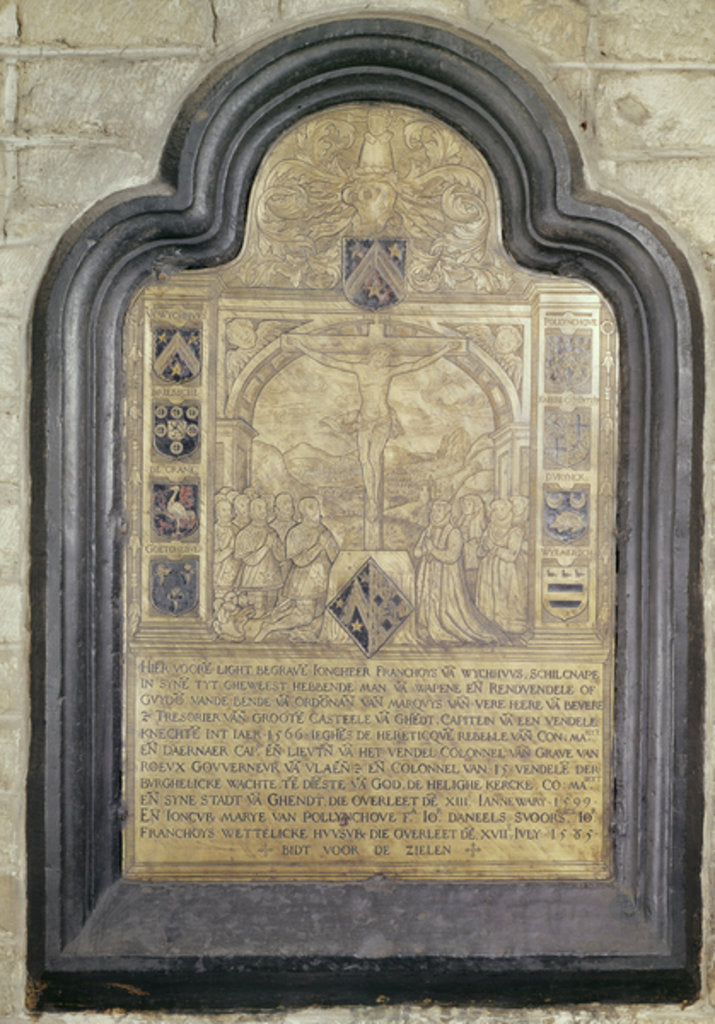 V. WYCHVVS
POLLYNCHOVE
DE CRANE
DVRYNCK
HIER VOORE LIGHT BEGRAVE IONCHEER FRANCHOYS VA WYCHVVS, SCHILCNAPE
IN SYNE TYT GHEWEEST HEBBENDE MAN VA WAPENE EN RENDVENDELE OF
GVYDO VANDE BENDE VA ORDONAN VAN MARQVYS VAN VERE HEERE VA BEVERE
TRESORIER VAN GROOTE CASTEELE VA GHEDT, CAPITEIN VA EEN VENDELE
KNECHTE INT IAER 1566 IEGHES DE HERETICQVE REBELLE VAN CON. MA.
EN DAERNAER CAP. EN LIEVTN VA HET VENDEL COLONNEL VAN GRAVE VAN
ROEVX GOVVERNEVR VA VLAEN EN COLONNEL VAN 15 VENDELE DER
BVRGHELICKE WACHTE TE DIESTE VA GOD, DE HELIGHE KERCKE, CO. MA.
EN SYNE STADT VA GHENDT, DIE OVERLEET DE XIII IANNEWARY 1599
EN IONCVR MARYE VAN POLLYNCHOVE DANEELS SVOORS
FRANCHOYS WETTELICKE HVVSVR DIE OVERLEET DE XVII IVLY 1585
BIDT VOOR DE ZIELEN